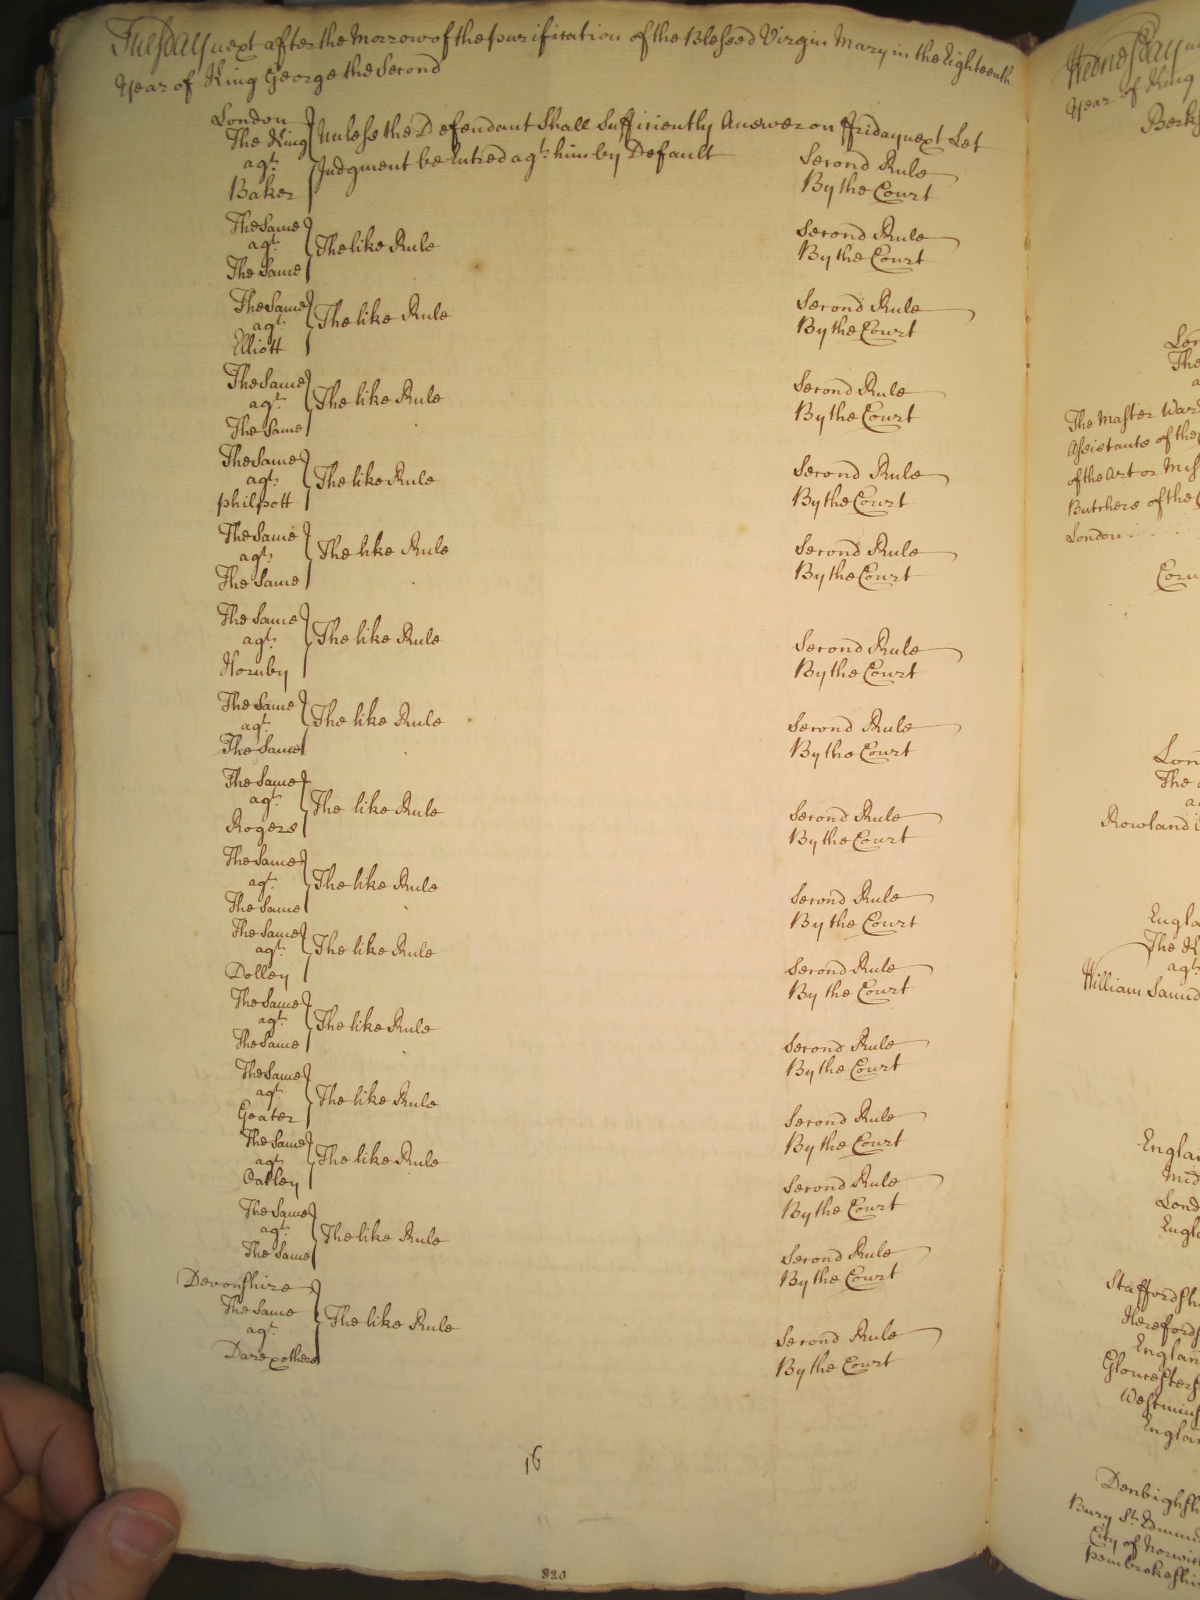 Tuesday next after the Morrow of the purification of the Blessed Virgin Mary in the Eighteenth
Year of King George the Second
London
The King
agt.
Baker
Unless the Defendant Shall Sufficiently Answer on ffriday next Let
Judgment be Entred agt. him by Default
Second Rule
By the Court
The Same
agt.
The Same
The like Rule
Second Rule
By the Court
The Same
agt.
Elliott
The like Rule
Second Rule
By the Court
The Same
agt.
The Same
The like Rule
Second Rule
By the Court
The Same
agt.
philpott
The like Rule
Second Rule
By the Court
The Same
agt.
The Same
The like Rule
Second Rule
By the Court
The Same
agt.
Hornby
The like Rule
Second Rule
By the Court
The Same
agt.
The Same
The like Rule
Second Rule
By the Court
The Same
agt.
Rogers
The like Rule
Second Rule
By the Court
The Same
agt.
The Same
The like Rule
Second Rule
By the Court
The Same
agt.
Dolley
The like Rule
Second Rule
By the Court
The Same
agt.
The Same
The like Rule
Second Rule
By the Court
The Same
agt.
Geater
The like Rule
Second Rule
By the Court
The Same
agt.
Oatley
The like Rule
Second Rule
By the Court
The Same
agt.
The Same
The like Rule
Second Rule
By the Court
Devonshire
The Same
agt.
Dare & others
The like Rule
Second Rule
By the Court
16
820
Wednesday
Year of King
Berks
Lon
The
a
The Master War
Assistants of the
of the Art or Mis
Butchers of the
London
Corn
Lon
The
a
Rowland
Engla
The K
agt.
William Samu
Englan
Mid
Lond
Engla
Staffordsh
Herefords
Englan
Gloucesters
Westmins
Englan
Denbighsh
Bury St. Edmun
City of Norwi
pembrokeshi